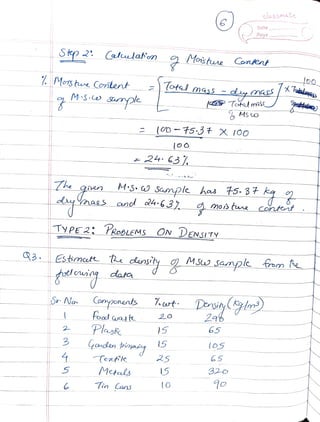 classmate
Date
Page
6
Step 2: Calculation of Moisture Content
% Moisture Content of M.S.W sample = [Total mass - dry mass / Total mass of MSW] × 100
= 100 - 75.37 × 100
100
= 24.63%
The given M.S.W sample has 75.37 kg of
dry mass and 24.63% of moisture content.
TYPE 2: PROBLEMS ON DENSITY
Q3. Estimate the density of MSW sample from the
following data
Sr No. Components % wt. Density (kg/m³)
1 Food waste 20 290
2 Plastic 15 65
3 Garden trimming 15 105
4 Textile 25 65
5 Metals 15 320
6 Tin Cans 10 90